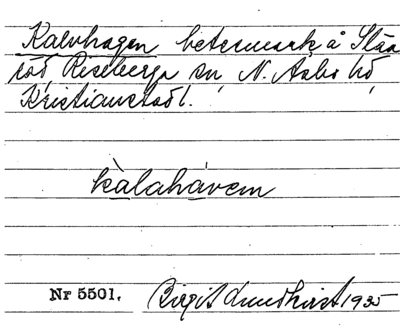 Kalvhagen betesmark å Slää
röd, Riseberga sn, N. Åsbo hd,
Kristianstads l.
kàlahávem
Nr 5501. Birgit Lundkvist 1935